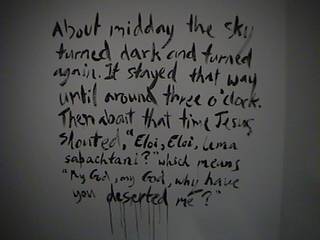 About midday the sky
turned dark and turned
again. It stayed that way
until around three o'clock.
Then about that time Jesus
shouted, "Eloi, Eloi, lema
sabachtani?" which means
"My God, my God, why have
you deserted me?"